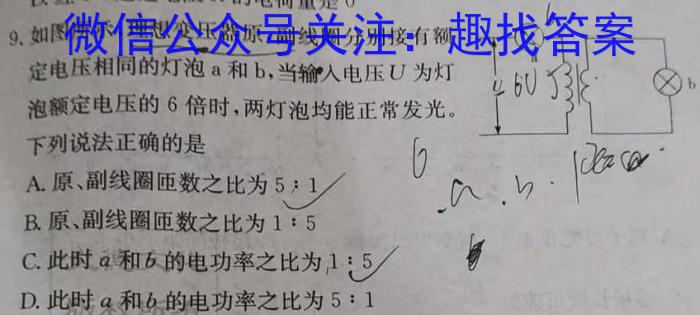 微信公众号关注：趣找答案
9. 如图所示,理想变压器原、副线圈分别接有额
定电压相同的灯泡 a 和 b,当输入电压 U 为灯
泡额定电压的 6 倍时,两灯泡均能正常发光。
下列说法正确的是
A. 原、副线圈匝数之比为 5∶1
B. 原、副线圈匝数之比为 1∶5
C. 此时 a 和 b 的电功率之比为 1∶5
D. 此时 a 和 b 的电功率之比为 5∶1
b
6U
6
a
b